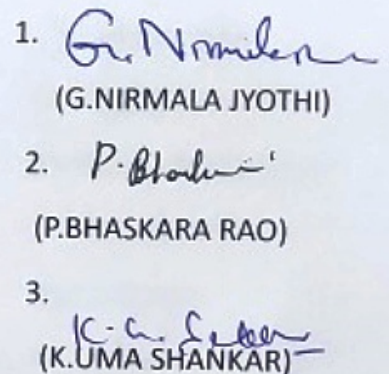 1. G. Nirmala
(G.NIRMALA JYOTHI)
2. P. Bhaskar
(P.BHASKARA RAO)
3.
K. U.
(K.UMA SHANKAR)